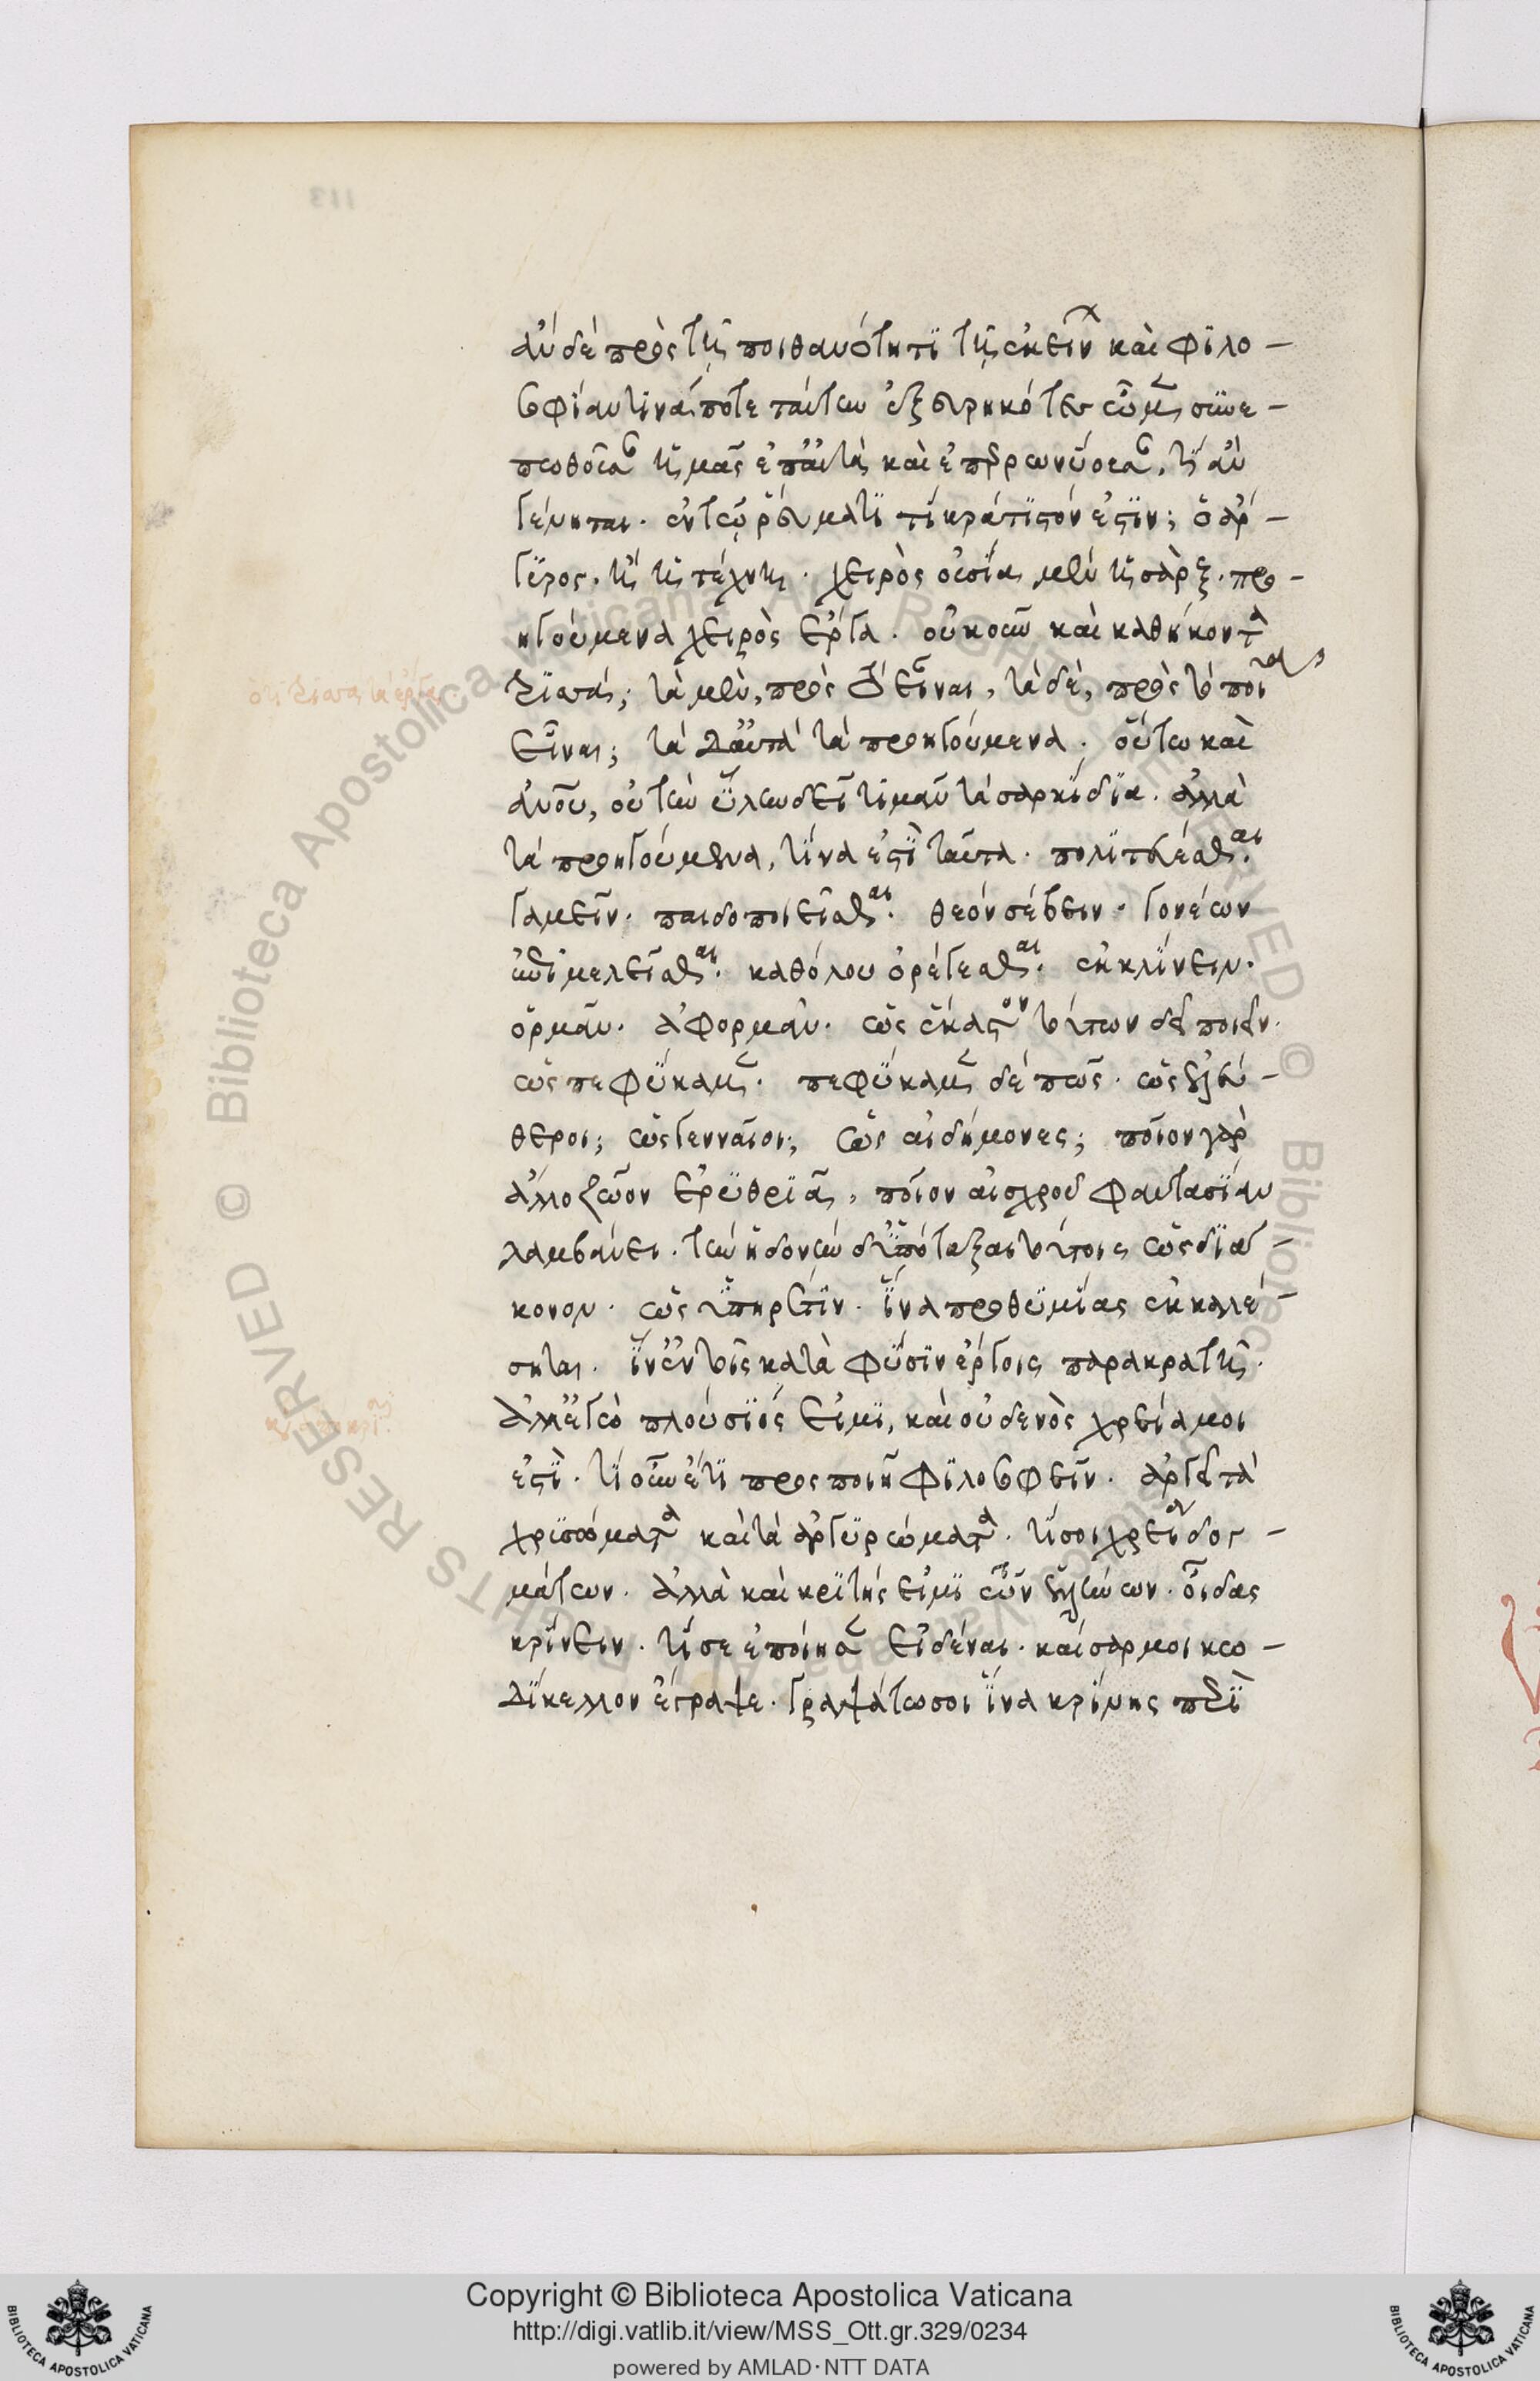 ἂν δὲ πρὸς τῇ πιθανότητι τῇ ἐκείν καὶ φιλο-
σοφίαν τινά ποτε ταύτην ἐξευρηκότες ὦμεν συνε-
πωθοῦσαν ἡμᾶς ἐπ' αὐτὰ καὶ ἐπιρρωννύουσαν, τί ἂν
γένηται. ἐν τῷ τορεύματι τί κράτιστόν ἐστιν; ὁ ἄρ-
γυρος. ἢ ἡ τέχνη. χειρὸς οὐσία μὲν ἡ σάρξ. προ-
ηγούμενα χειρὸς ἔργα. οὐκοῦν καὶ καθήκοντα
τριττά; τὰ μὲν, πρὸς τὸ εἶναι, τὰ δὲ, πρὸς τὸ ποιὰ
εἶναι; τὰ δ' αὐτὰ τὰ προηγούμενα. οὕτω καὶ
ἀνου, οὐ τὴν ὕλην δεῖ τιμᾶν τὰ σαρκίδια. ἀλλὰ
τὰ προηγούμενα, τίνα ἐστὶ ταῦτα. πολιτεύεσθαι.
γαμεῖν. παιδοποιεῖσθαι. θεὸν σέβειν. γονέων
ἐπιμελεῖσθαι. καθόλου ὀρέγεσθαι. ἐκκλίνειν.
ὁρμᾶν. ἀφορμᾶν. ὡς ἕκαστον τούτων δεῖ ποιεῖν.
ὡς πεφύκαμεν. πεφύκαμεν δὲ πῶς. ὡς ἐλεύ-
θεροι; ὡς γενναῖοι; ὡς αἰδήμονες; ποῖον γὰρ
ἄλλο ζῷον ἐρυθριᾷ, ποῖον αἰσχροῦ φαντασίαν
λαμβάνει. τὴν ἡδονὴν δ' ὑπόταξαι τούτοις ὡς διά-
κονον. ὡς ὑπηρέτιν. ἵνα προθυμίας ἐκκαλέ-
σηται. ἵν' ἐν τοῖς κατὰ φύσιν ἔργοις παρακρατῇ.
ἀλλ' ἐγὼ πλούσιός εἰμι, καὶ οὐδενὸς χρεία μοι
ἐστί. τί οὖν ἔτι προσποιῇ φιλοσοφεῖν. ἀρκεῖ τὰ
χρυσώματα καὶ τὰ ἀργυρώματα. τί σοι χρεία δογ-
μάτων. ἀλλὰ καὶ κριτής εἰμι τῶν ἑλλήνων. οἶδας
κρίνειν. τί σε ἐποίησεν εἰδέναι. καῖσάρ μοι κω-
δίκελλον ἔγραψε. γραψάτω σοι ἵνα κρίνῃς περὶ
Copyright © Biblioteca Apostolica Vaticana
http://digi.vatlib.it/view/MSS_Ott.gr.329/0234
powered by AMLAD·NTT DATA